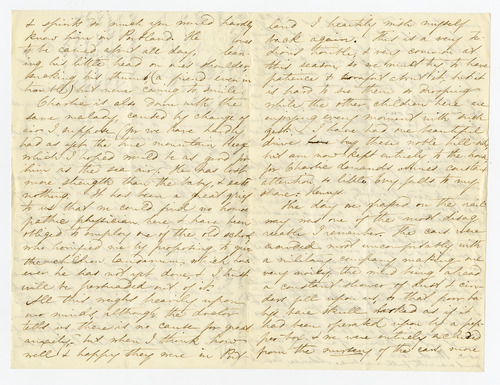 & spirits so much you would hardly
know him in Portland. He loves
to be carried about all day, lean-
ing his little head on ones shoulder
sucking his thumb (a friend even in
trouble) but never caring to smile.
Charlie is also down with the
same malady, caused by change of
air I suppose for we have hardly
had as yet the pure mountain breeze
which I hoped would be as good for
him as the sea air. He has lost
more strength than the baby, & eats
nothing. It has been a great grief
to me that we could find no homeo-
pathic physician here & have been
obliged to employ one of the old school
who horrified me by proposing to give
the children laudanum, which how-
ever he has not yet done, & I trust
will be persuaded out of it.
All this weighs heavily upon
our minds, although the doctor
tells us there is no cause for great
anxiety, but when I think how
well & happy they were in Port-
land I heartily wish myself
back again. This is a very te-
dious trouble, & very common at
this season, so we must try to have
patience & comfort about it, but it
is hard to see them so drooping
while the other children here are
enjoying every moment with such
zest. I have had one beautiful
drive by these noble hills
but am now kept entirely to the house
for Charlie demands almost constant
attention so little boy falls to my
share.
The day we passed on the rail
way was one of the most disag-
reeable I remember. The cars were
crowded most uncomfortably with
a military company making us
very noisy, the wind being ahead
a constant shower of dust & cin-
ders fell upon us, so that poor ba-
by's bare skull looked as if it
had been operated upon by a pep-
per box, & we were entirely excluded
from the nursery of the cars more